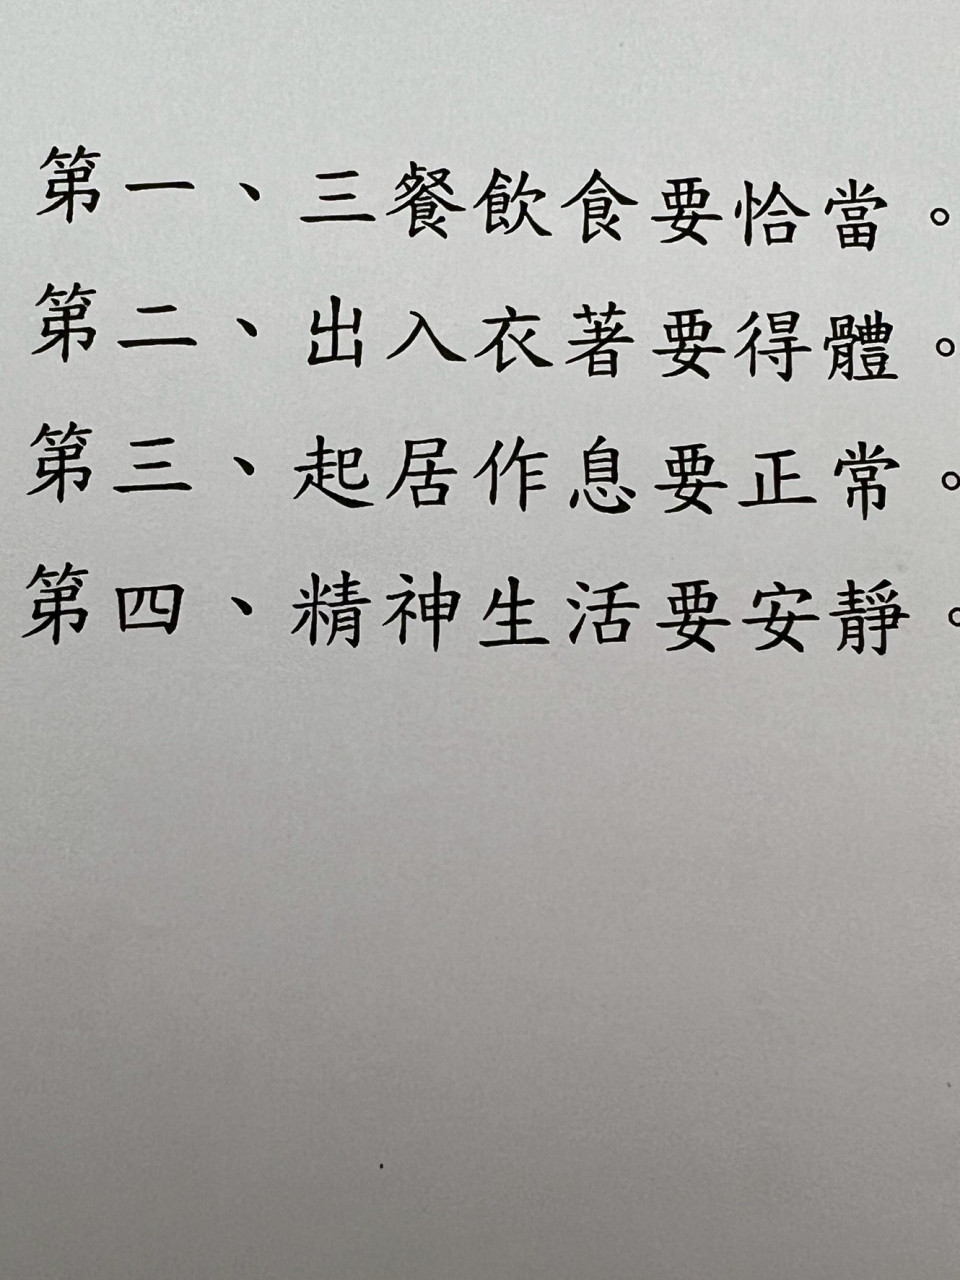 第一、三餐飲食要恰當。
第二、出入衣著要得體。
第三、起居作息要正常。
第四、精神生活要安靜。